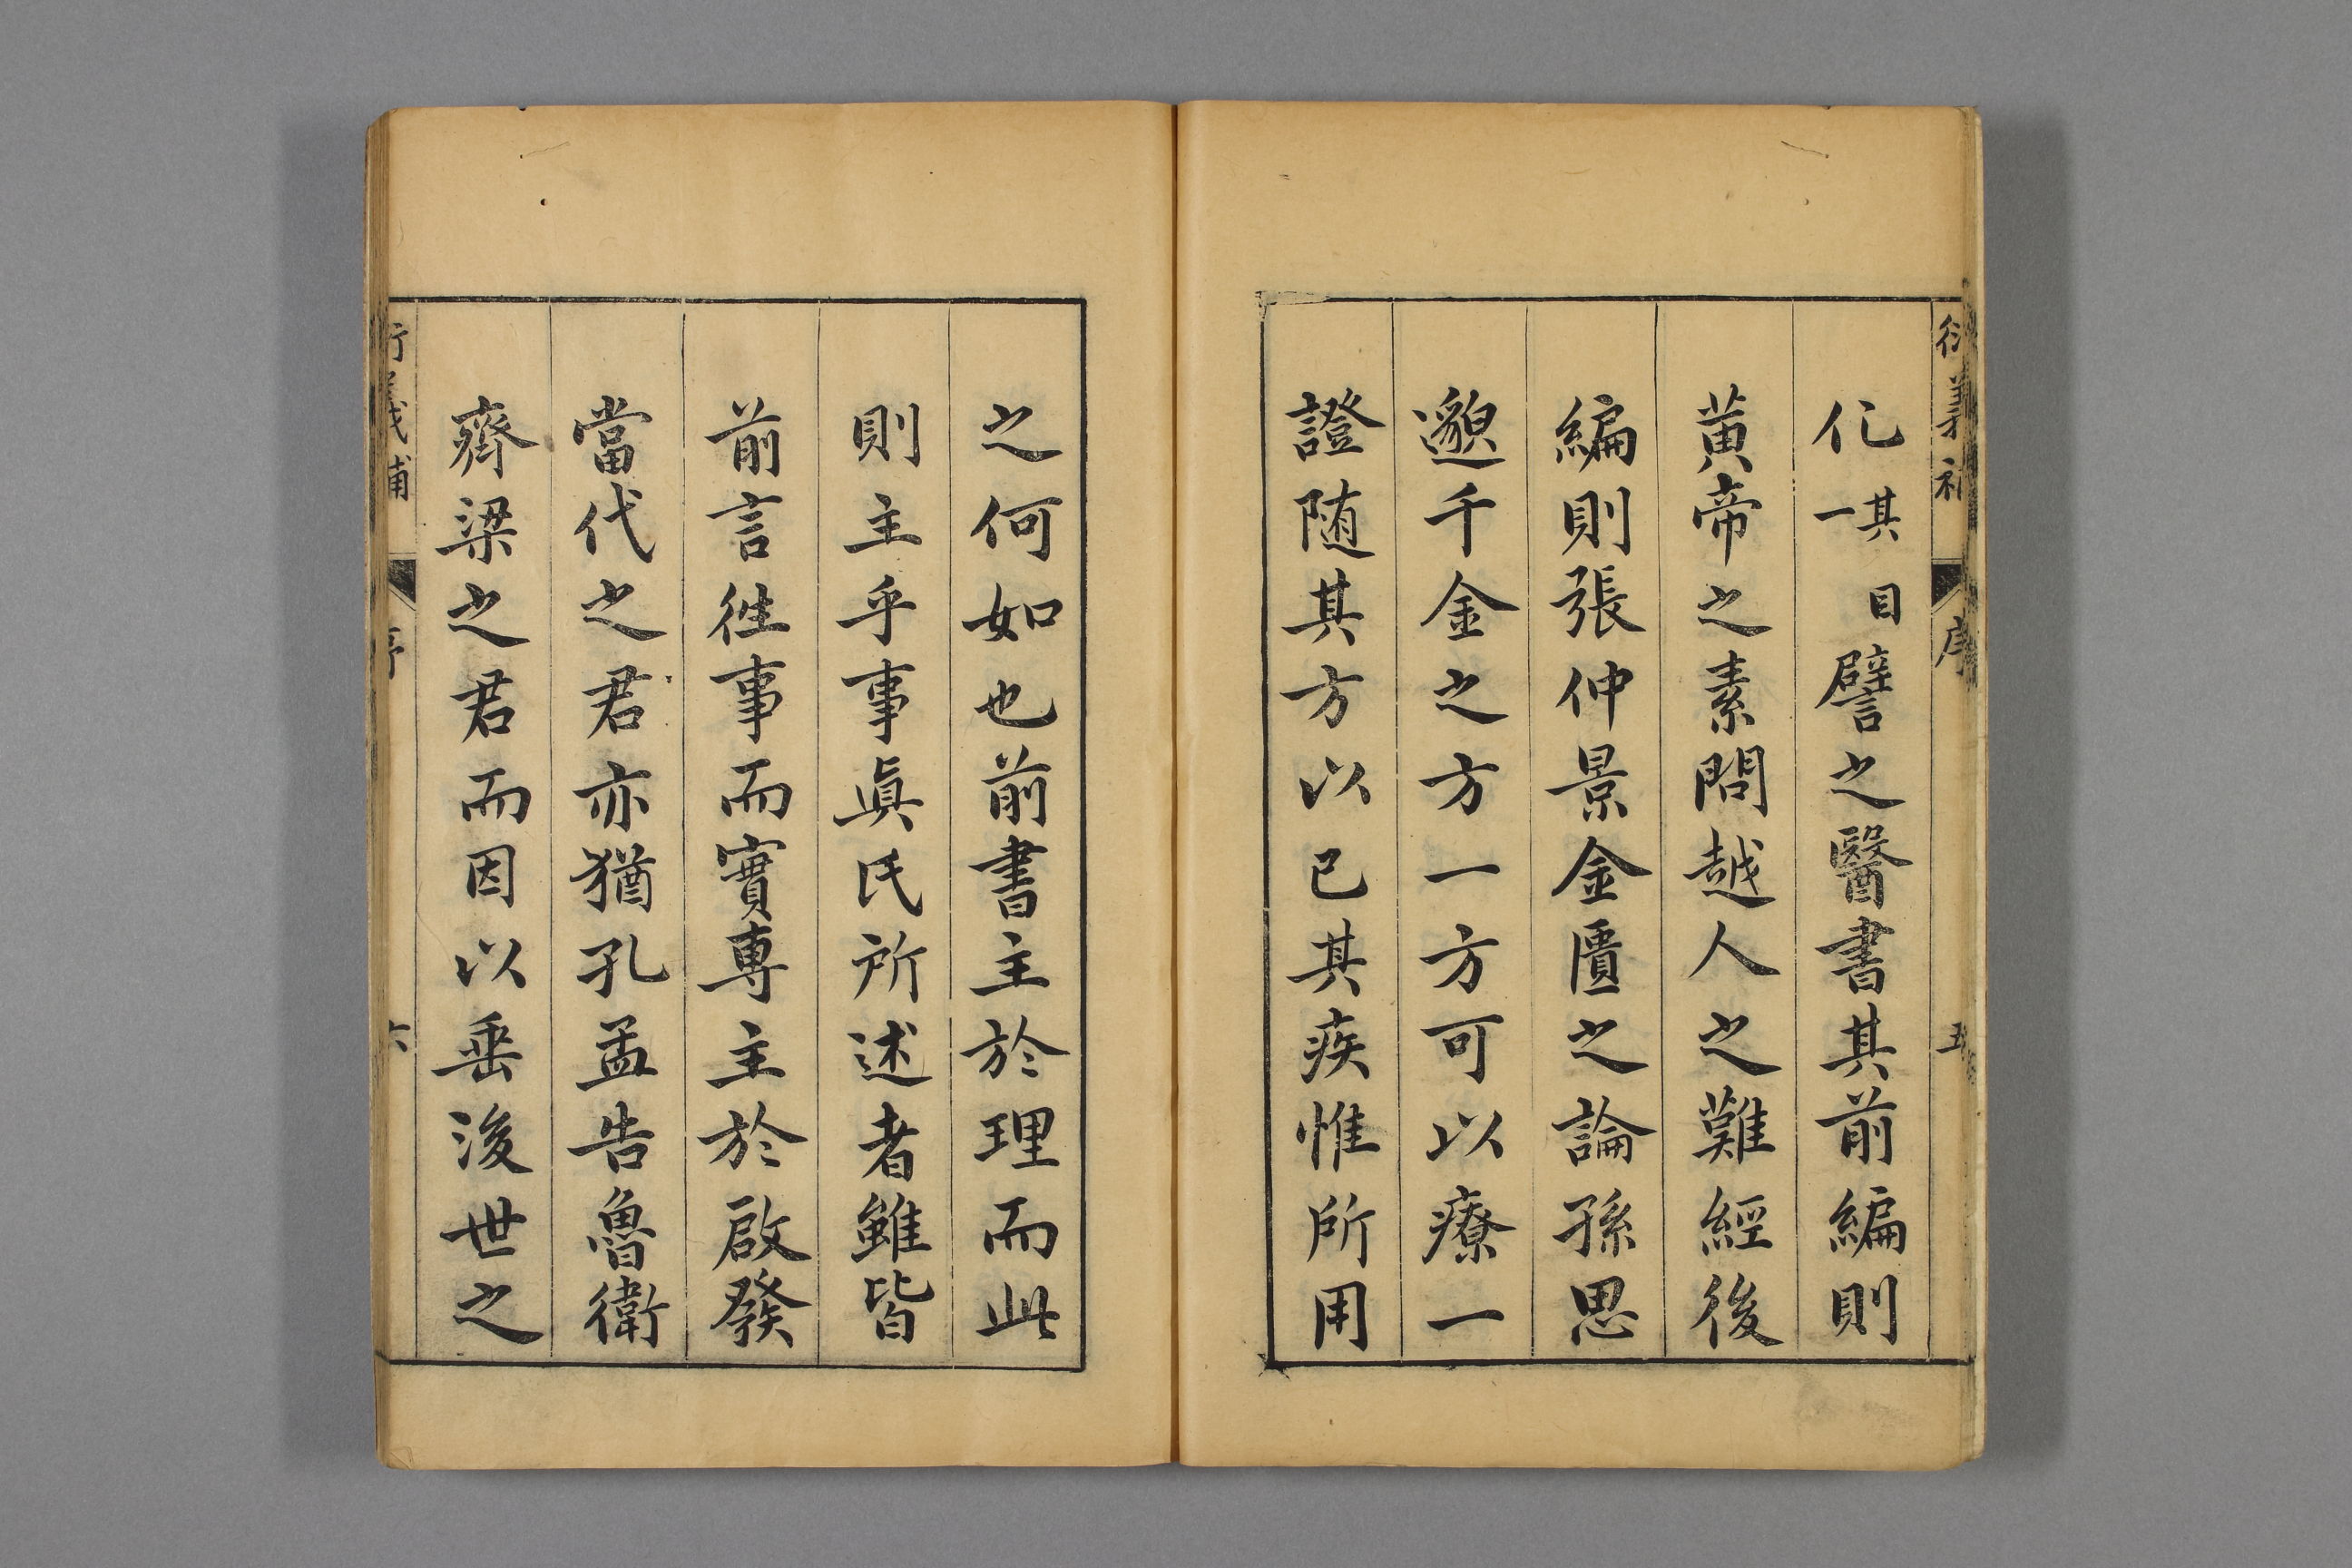 衍義補
序
五
化其目一譬之醫書其前編則
黃帝之素問越人之難經後
編則張仲景金匱之論孫思
邈千金之方一方可以療一
證随其方以已其疾惟所用
之何如也前書主於理而此
則主乎事眞氏所述者雖皆
前言徃事而實專主於啟發
當代之君亦猶孔孟告魯衛
齊梁之君而因以垂後世之
衍義補
序
六